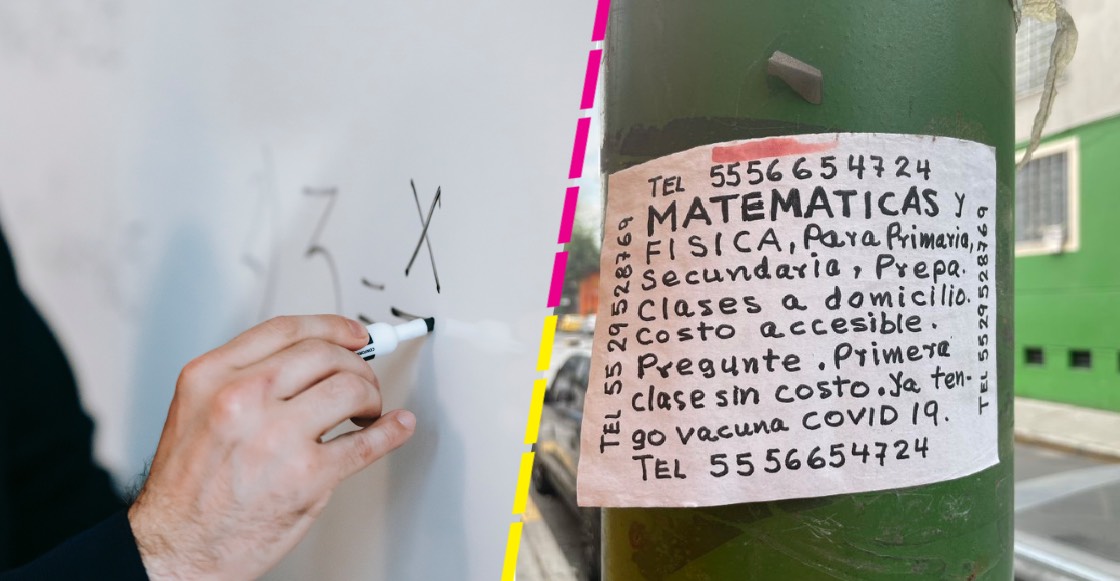 3 X
TEL 5556654724
MATEMATICAS y
FISICA, Para Primaria,
Secundaria, Prepa.
Clases a domicilio.
Costo accesible.
Pregunte. Primera
clase sin costo. Ya ten-
go vacuna COVID 19.
TEL 5556654724
TEL 5529528769
TEL 5529528769